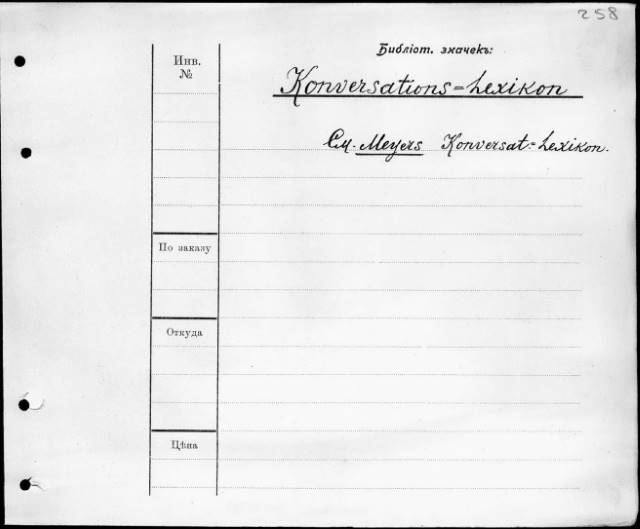 258
Библіот. значекъ:
Инв.
№
Konversations=Lexikon
См. Meyers Konversat=Lexikon.
По заказу
Откуда
Цѣна